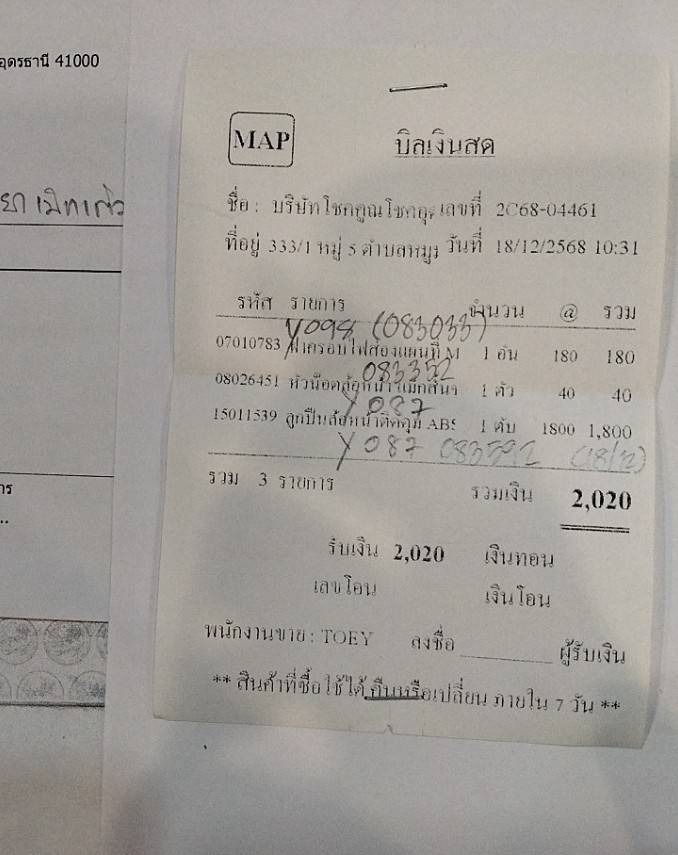 อุดรธานี 41000
MAP
บิลเงินสด
ชื่อ : บริษัทโชคคูณโชคอุ เลขที่ 2C68-04461
ที่อยู่ 333/1 หมู่ 5 ตำบลหมู วันที่ 18/12/2568 10:31
รหัส รายการ จำนวน @ รวม
Y098 (083033)
07010783 ฝาครอบไฟส่องแผนที่ M 1 อัน 180 180
083352
08026451 หัวน๊อตล้อหน้า 1 ตัว 40 40
Y087
15011539 ลูกปืนล้อหน้าติดดุม ABS 1 ตับ 1800 1,800
Y087 083592 (18/12)
รวม 3 รายการ รวมเงิน 2,020
รับเงิน 2,020 เงินทอน
เลขโอน เงินโอน
พนักงานขาย : TOEY ลงชื่อ ผู้รับเงิน
** สินค้าที่ซื้อไช้ได้ คืนหรือเปลี่ยน ภายใน 7 วัน **